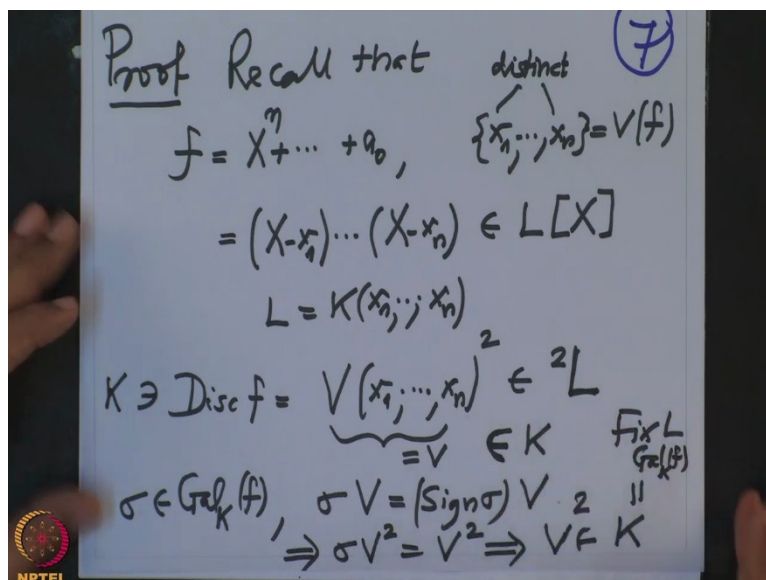 7
Proof Recall that distinct
f = Xⁿ + ⋯ + a₀, {x₁, ⋯, xₙ} = V(f)
= (X-x₁) ⋯ (X-xₙ) ∈ L[X]
L = K(x₁, ⋯, xₙ)
K ∋ Disc f = V(x₁, ⋯, xₙ)² ∈ ²L
= V ∈ K Fix L Gal_K(f)
σ ∈ Gal_K(f), σV = (Sign σ) V ||
⇒ σV² = V² ⇒ V² ∈ K
NPTEL